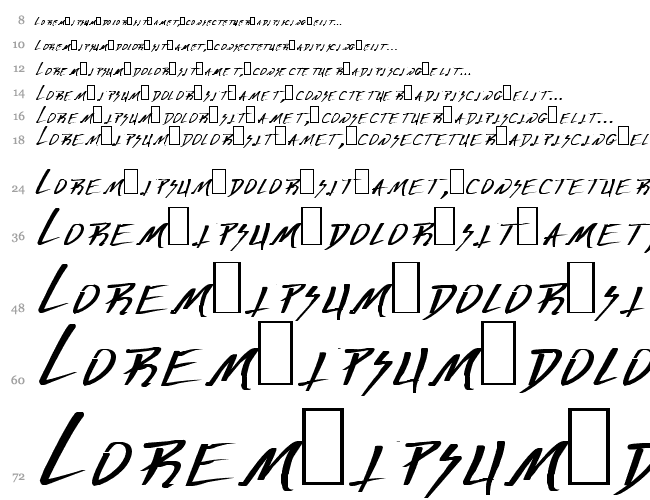 8 Lorem□ipsum□dolor□sit□amet,□consectetuer□adipiscing□elit...
10 Lorem□ipsum□dolor□sit□amet,□consectetuer□adipiscing□elit...
12 Lorem□ipsum□dolor□sit□amet,□consectetuer□adipiscing□elit...
14 Lorem□ipsum□dolor□sit□amet,□consectetuer□adipiscing□elit...
16 Lorem□ipsum□dolor□sit□amet,□consectetuer□adipiscing□elit...
18 Lorem□ipsum□dolor□sit□amet,□consectetuer□adipiscing□el
24 Lorem□ipsum□dolor□sit□amet,□consectetuer
36 Lorem□ipsum□dolor□sit□amet,
48 Lorem□ipsum□dolor□si
60 Lorem□ipsum□dolo
72 Lorem□ipsum□d